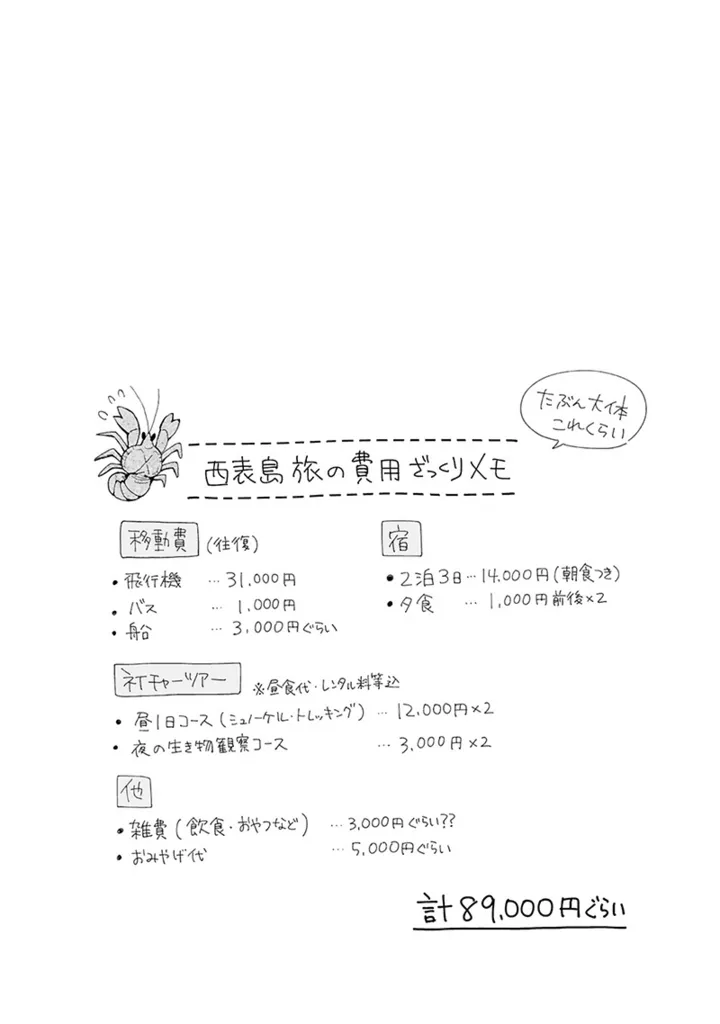 たぶん大体
これくらい
西表島旅の費用ざっくりメモ
移動費 (往復)
・飛行機 …31,000円
・バス … 1,000円
・船 … 3,000円ぐらい
宿
・2泊3日…14,000円(朝食つき)
・夕食 … 1,000円前後×2
ネイチャーツアー ※昼食代・レンタル料等込
・昼1日コース(シュノーケル・トレッキング) …12,000円×2
・夜の生き物観察コース … 3,000円×2
他
・雑費(飲食・おやつなど) …3,000円ぐらい??
・おみやげ代 … 5,000円ぐらい
計89,000円ぐらい